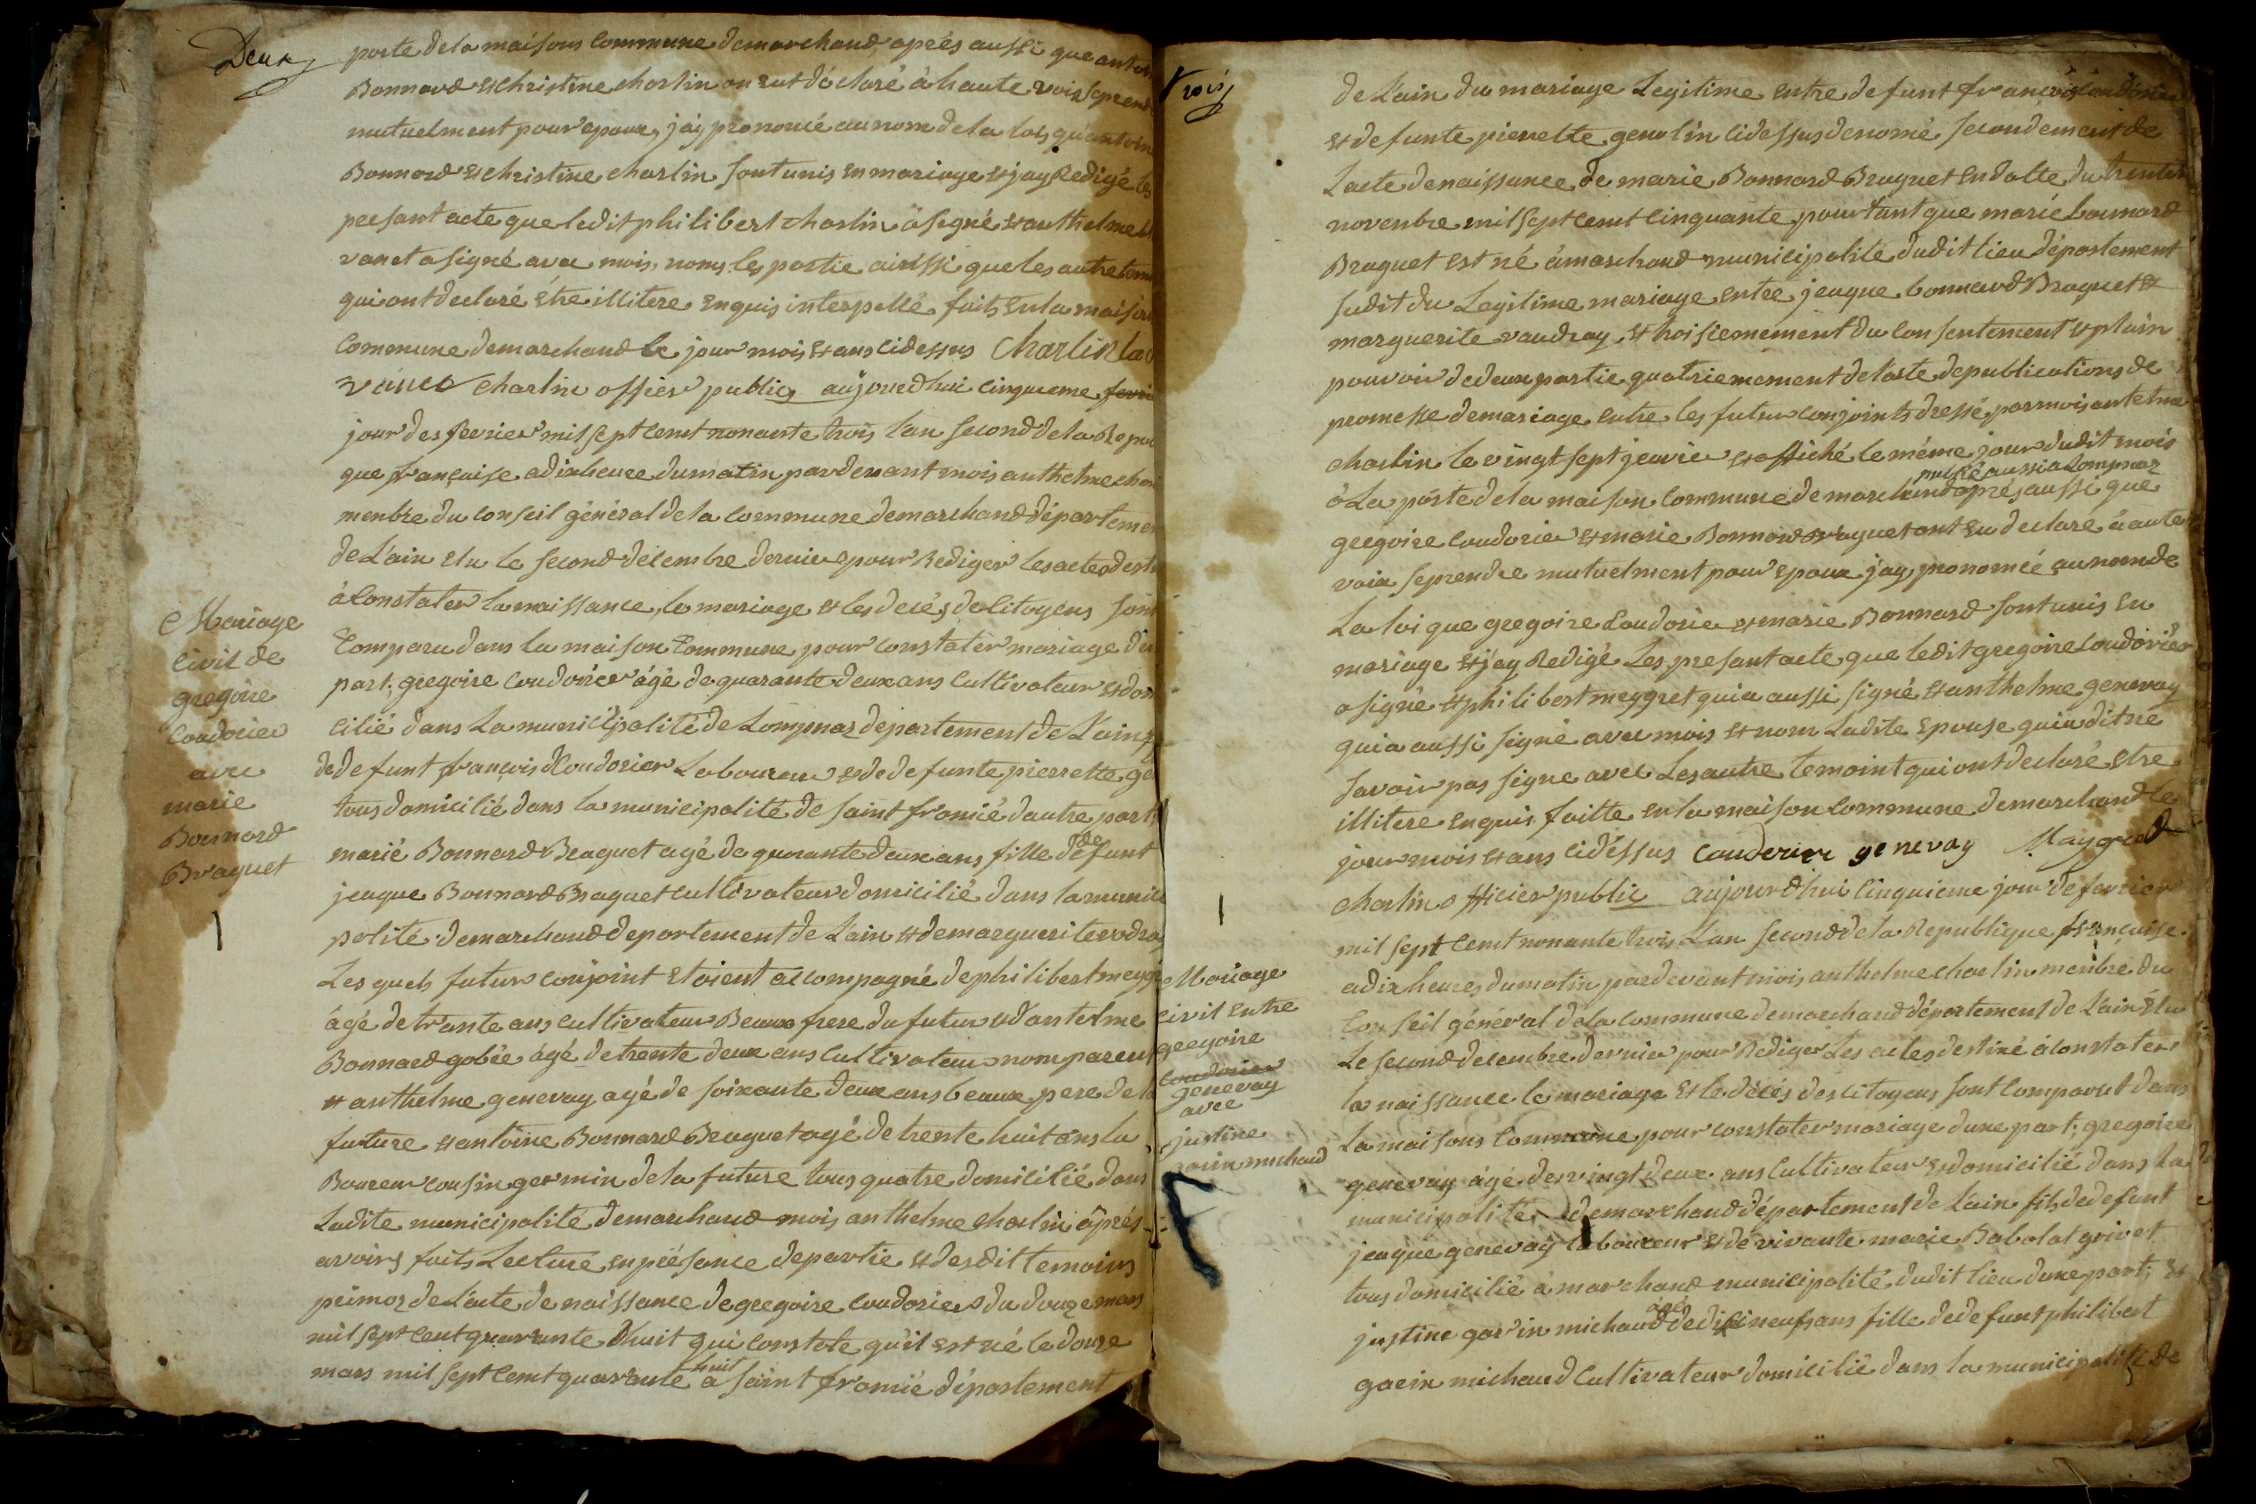 Deux
porte de la maisons Commune demarchand, aprés aussi que antoi
Bonnard et Christine charlin on eut déclaré à haute voix se prend
mutuelment pour epoux, jáy prononcé au nom de la loi, qu'antoin
Bonnard et Christine charlin sont unis en mariage et jay Redigé les
presant acte que ledit philibert charlin à signé et anthelme
vanct a signé avec mois, noms les partie ainssi que les autre temo
qui ont declaré étre illitere enquis interpellé, faits en la maison
Commune demarchand le jour mois et ans cidessus Charlin
charlin officier public, aujourdhui cinquieme
jour des fevrier mil sept cent nonante trois l'an second de la Repu
que française a dix heure du matin par devant mois anthelme cha
menbre du conseil général de la commune demarchand départemen
de L'ain elu le second décembre dernier pour Rediger les actes desti
à constater la naissance, le mariage et les decés de Citoyens sont
Comparu dans la maison Commune pour constater mariage d'u
part, gregoire coudorier âgé de quarante deux ans Cultivateur et dom
cilié dans La municipalité de Lompnas departement de L'ain,
de defunt françois Coudorier Laboureur et de defunte pierrette ge
tous domicilié dans la municipalité de saint fromié d'autre part
marié Bonnard Braguet agé de quarante deux ans fille de defunt
jeaque Bonnard Braguet cultivateur domicilié dans la munici
palité demarchand departement de L'ain et de marguerite vodra
Les quels futur conjoint etoient accompagné de philibert meyg
âgé de trante ans cultivateur Beaux frere du futur et d'antelme
Bonnard gobée âgé de trente deux ans Cultivateur nom parent
et anthelme genevay agé de soixante deux ans beaux pere de la
future et antoine Bonnard Braguet agé de trente huit ans La
Boureur cousin germin de la future tous quatre domicilié dans
Ladite municipalité demarchand mois anthelme charlin âprés
avoirs faits Lecture en présance de partie et des dit temoins
primo, de L'acte de naissance de gregoire coudorier du douze mars
mil sept cent quarante huit qui constate qu'il est né le douze
mars mil sept cent quarante huit à saint fromié département
Mariage
Civil de
gregoire
Coudorier
avec
marie
Bonnard
Braguet
Trois
de L'ain du mariage Legitime entre defunt françois Coudorier
et defunte pierrette genolin cidessus denomé secondement de
Lacte de naissance de marie Bonnard Braguet en datte du trente
novenbre mil sept cent cinquante pourtant que marié bonnard
Braguet est né à marchand municipalité dudit lieu département
sudit du Legitime mariage entre jeaque bonnard Braguet et
marguerite vaudray, et troisiemement du consentement et plain
pouvoir de deux partie quatriemement de l'acte de publications de
promesse de mariage entre les futur conjoints dressé par mois antelme
charlin le vingt sept jenvier et affiché le méme jour dudit mois
à La porte de la maison Commune de marchand publié aussi a Lompnaz aprés aussi que
gregoire coudorier et marie Bonnard Braguet ont eu declaré à aute
voix seprendre mutuelment pour epoux jay prononcé au nom de
La loi que gregoire Coudorier et marie Bonnard sont unis en
mariage et jay Redigé Les presant acte que ledit gregoire Coudorier
a signé et philibert meygret qui a aussi signé et anthelme genevay
qui a aussi signé avec mois et nom Ladite epouse qui a dit ne
savoir pas signe avec Les autre temoint qui ont declaré etre
illitere enquis faitte en la maison Commune demarchand le
jour mois et ans cidéssus Couderier genevay Maygret
charlin officier public aujourdhui Cinquieme jour de fevrier
mil sept cent nonante trois L'an second de la Republique française
a dix heures du matin par devant mois anthelme charlin menbre du
Conseil général de la Commune demarchand département de L'ain Elu
Le second decembre dernier pour Rediger Les actes destiné à constater
la naissance le mariage et le décés des Citoyens sont comparut dans
La maisons Commune pour constater mariage d'une part, gregoire
genevay âgé de vingt deux ans Cultivateur et domicilié dans La
municipalité demarchand département de L'ain fils de defunt
jeaque genevay laboureur et de vivante marie Babolat grivet
tous domicilié a marchand municipalité dudit lieu d'une part, et
justine garin michaud age de dix neufs ans fille de defunt philibert
garin michaud Cultivateur domicilié dans la municipalité de
Mariage
Civil entre
gregoire
coudorier
genevay
avec
justine
garin michaud